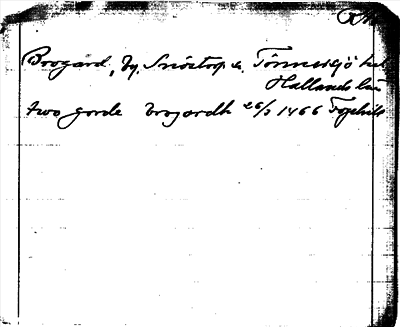 Brogård, by, Snöstorp s. Tönnersjö hd
Hallands län
two gorde brogardh 26/3 1466